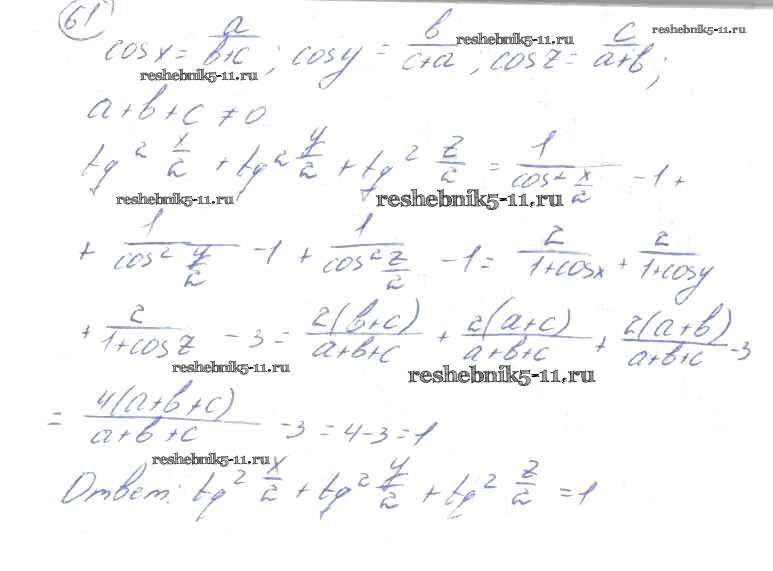 61
cos x = a/(в+с); cos y = в/(с+а); cos z = с/(а+в);
reshebnik5-11.ru reshebnik5-11.ru
reshebnik5-11.ru
а+в+с ≠ 0
tg² x/2 + tg² y/2 + tg² z/2 = 1/(cos² x/2) -1 +
reshebnik5-11.ru reshebnik5-11.ru
+ 1/(cos² y/2) -1 + 1/(cos² z/2) -1 = 2/(1+cosx) + 2/(1+cosy)
+ 2/(1+cosz) -3 = 2(в+с)/(а+в+с) + 2(а+с)/(а+в+с) + 2(а+в)/(а+в+с) -3
reshebnik5-11.ru reshebnik5-11.ru
= 4(а+в+с)/(а+в+с) -3 = 4-3=1
reshebnik5-11.ru
Ответ: tg² x/2 + tg² y/2 + tg² z/2 = 1
reshebnik5-11.ru